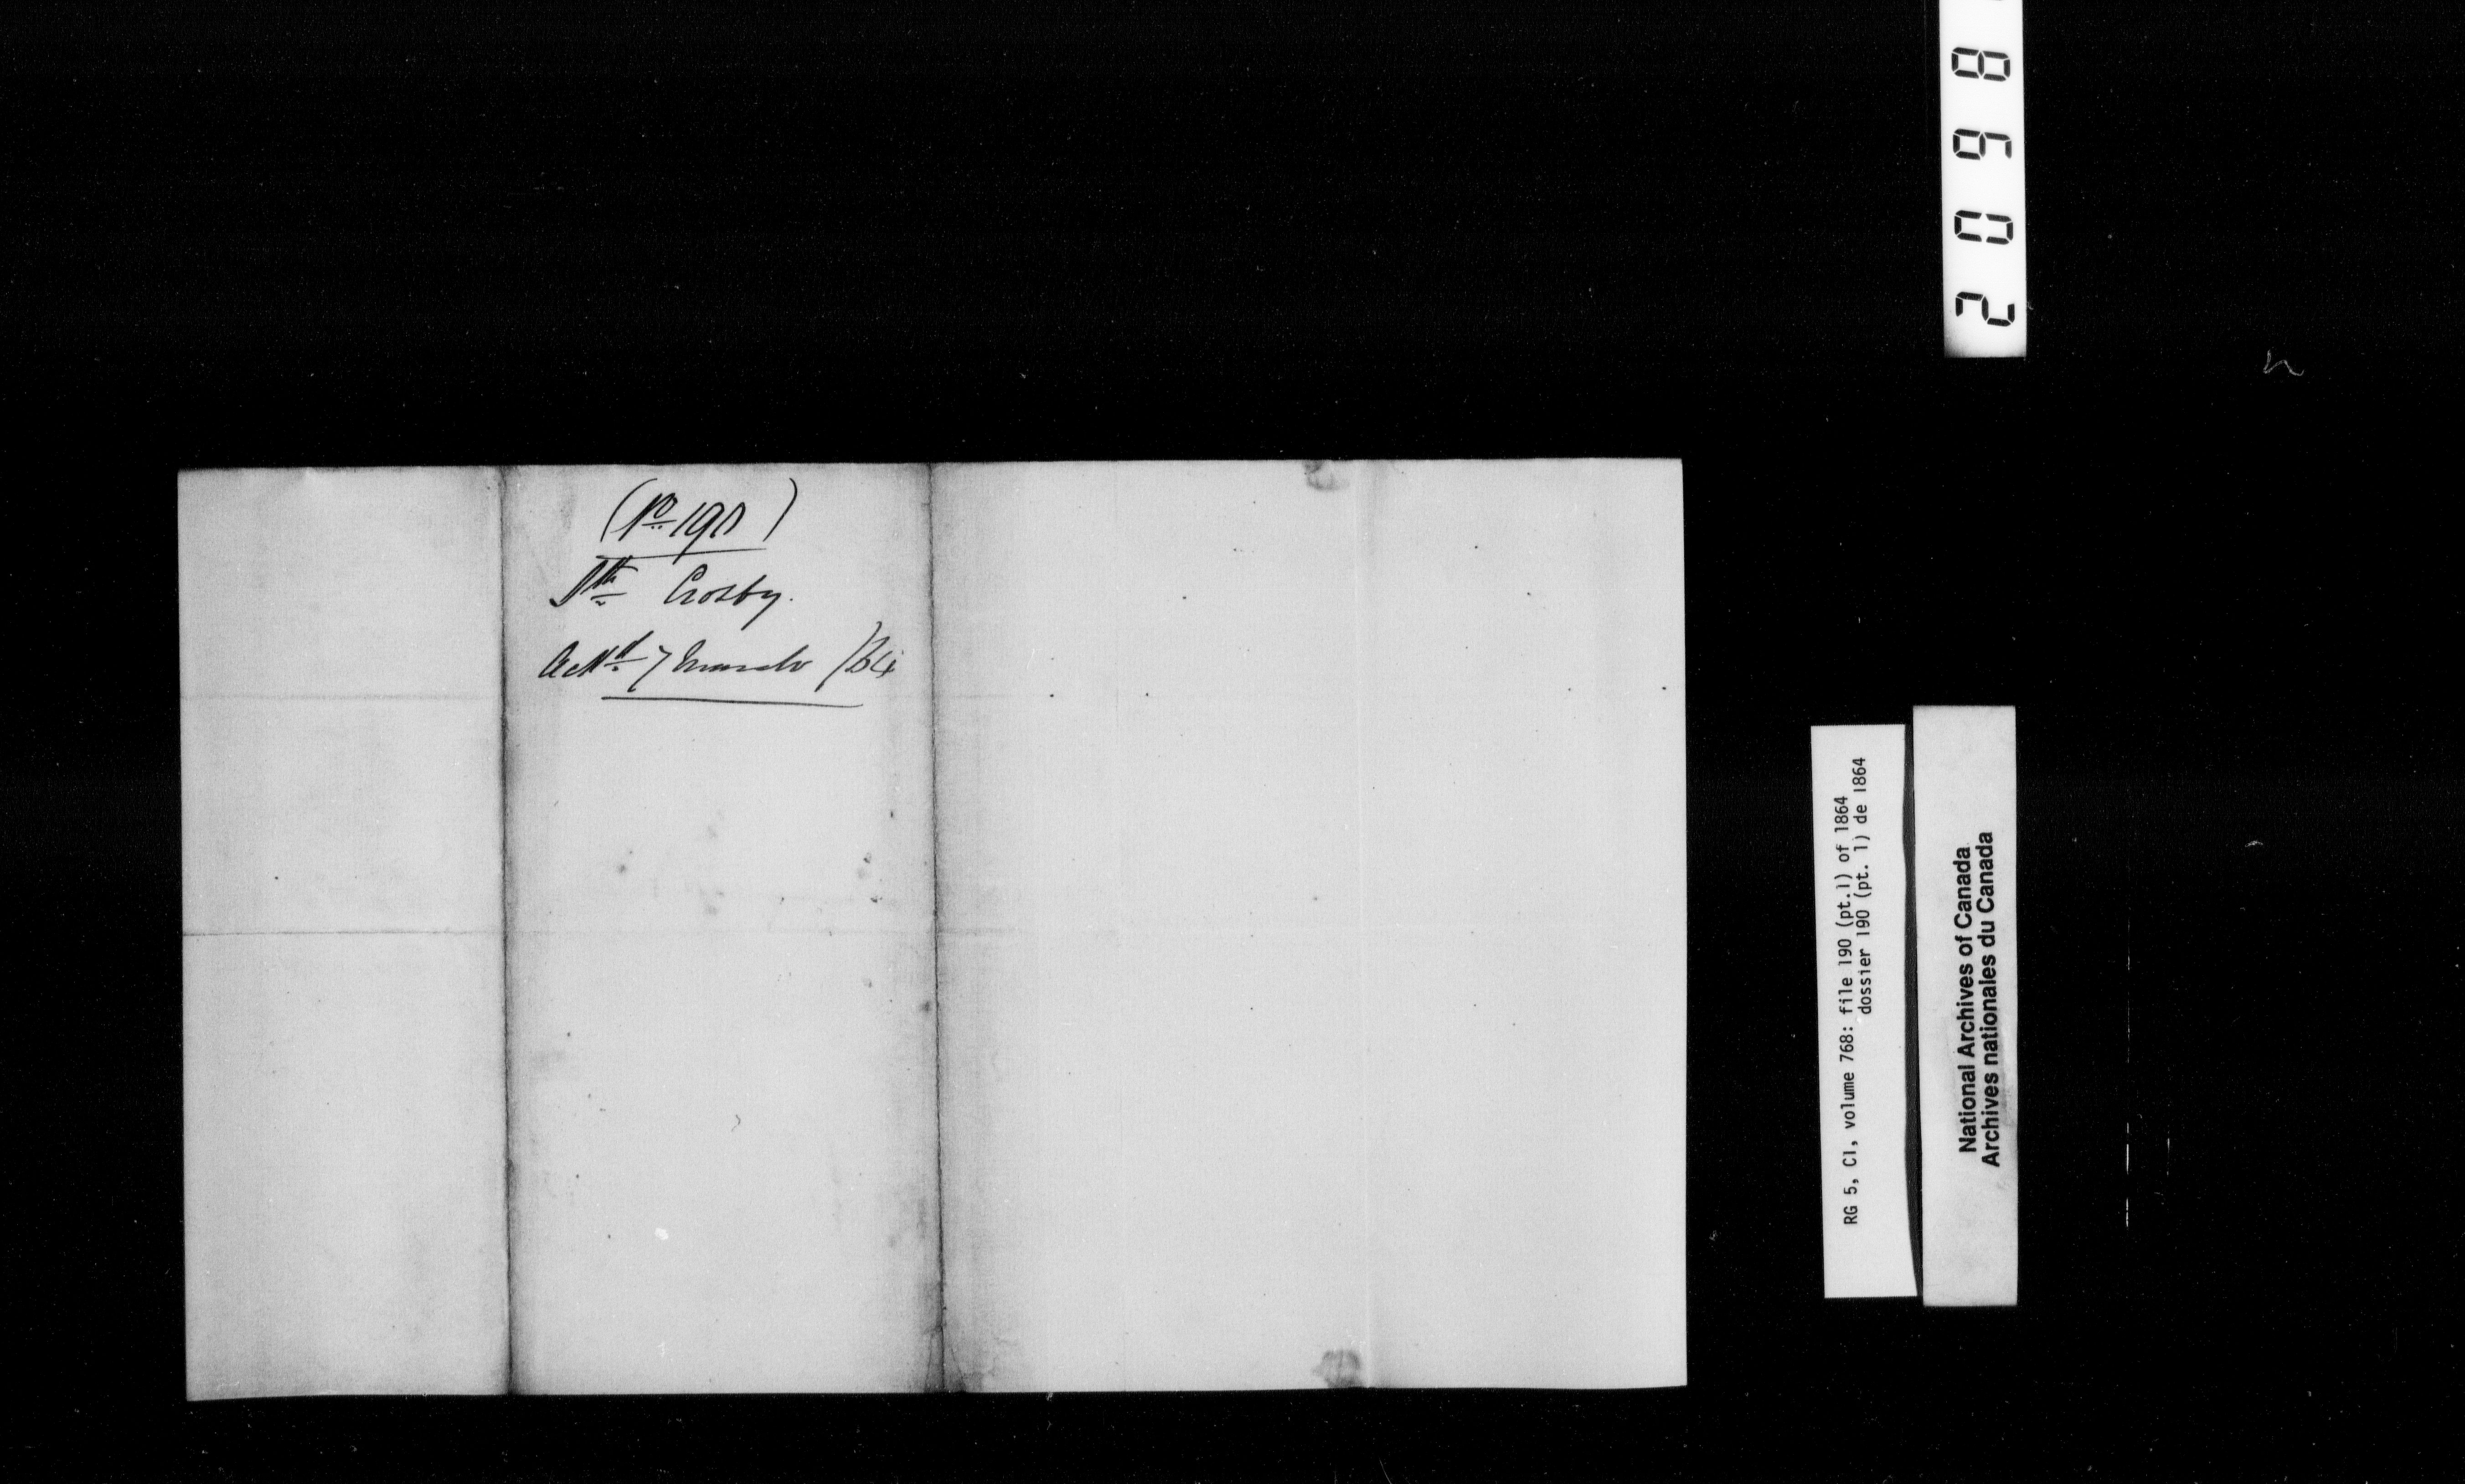 (No 190)
Crosby.
Ackd 7 March /64
2098
RG 5, C1, volume 768: file 190 (pt.1) of 1864
dossier 190 (pt. 1) de 1864
National Archives of Canada
Archives nationales du Canada